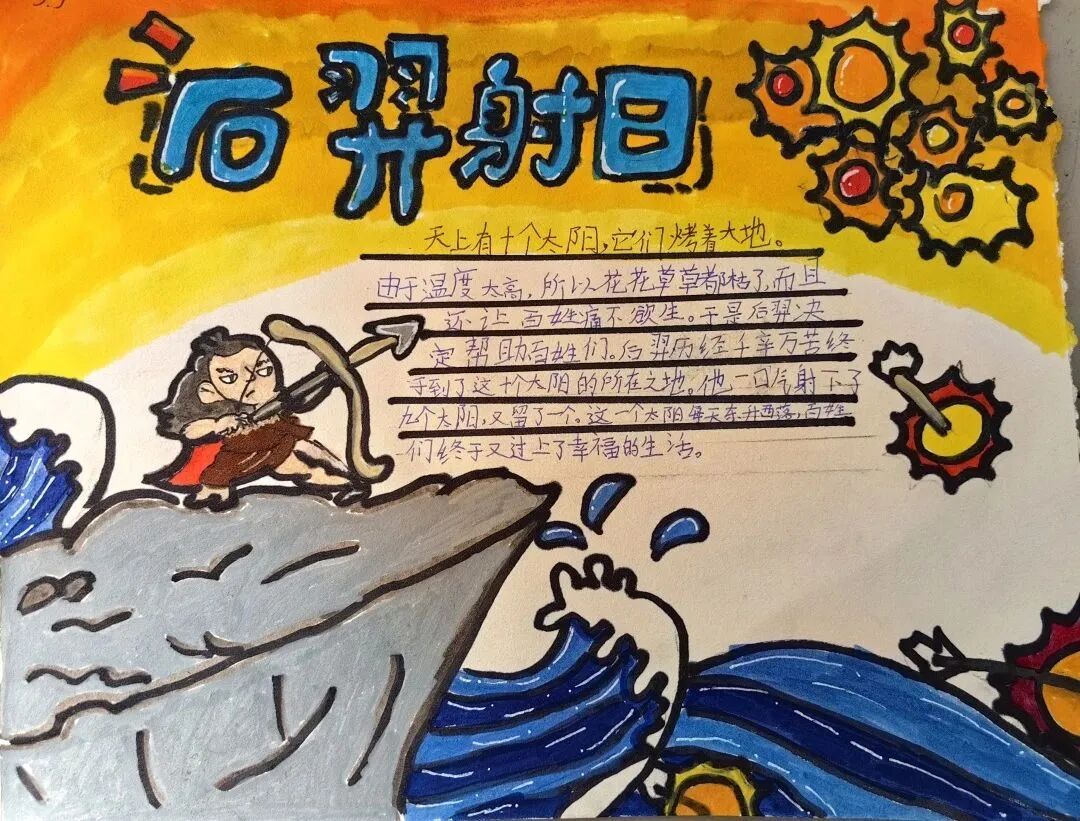 后羿射日
天上有十个太阳,它们烤着大地。
由于温度太高,所以花花草草都枯了,而且
还让百姓痛不欲生。于是后羿决
定帮助百姓们。后羿历经千辛万苦终
于到了这十个太阳的所在之地。他一口气射下了
九个太阳,又留了一个。这一个太阳每天东升西落,百姓
们终于又过上了幸福的生活。